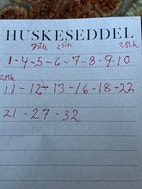 HUSKESEDDEL
25th 28th
1-4-5-6-7-8-9-10
11-12-13-16-18-22
21-27-32